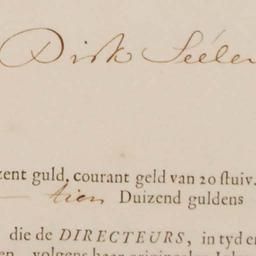 Dirk Seéler
zent guld, courant geld van 20 stuiv.
tien Duizend guldens
die de DIRECTEURS, in tyd en
volgens